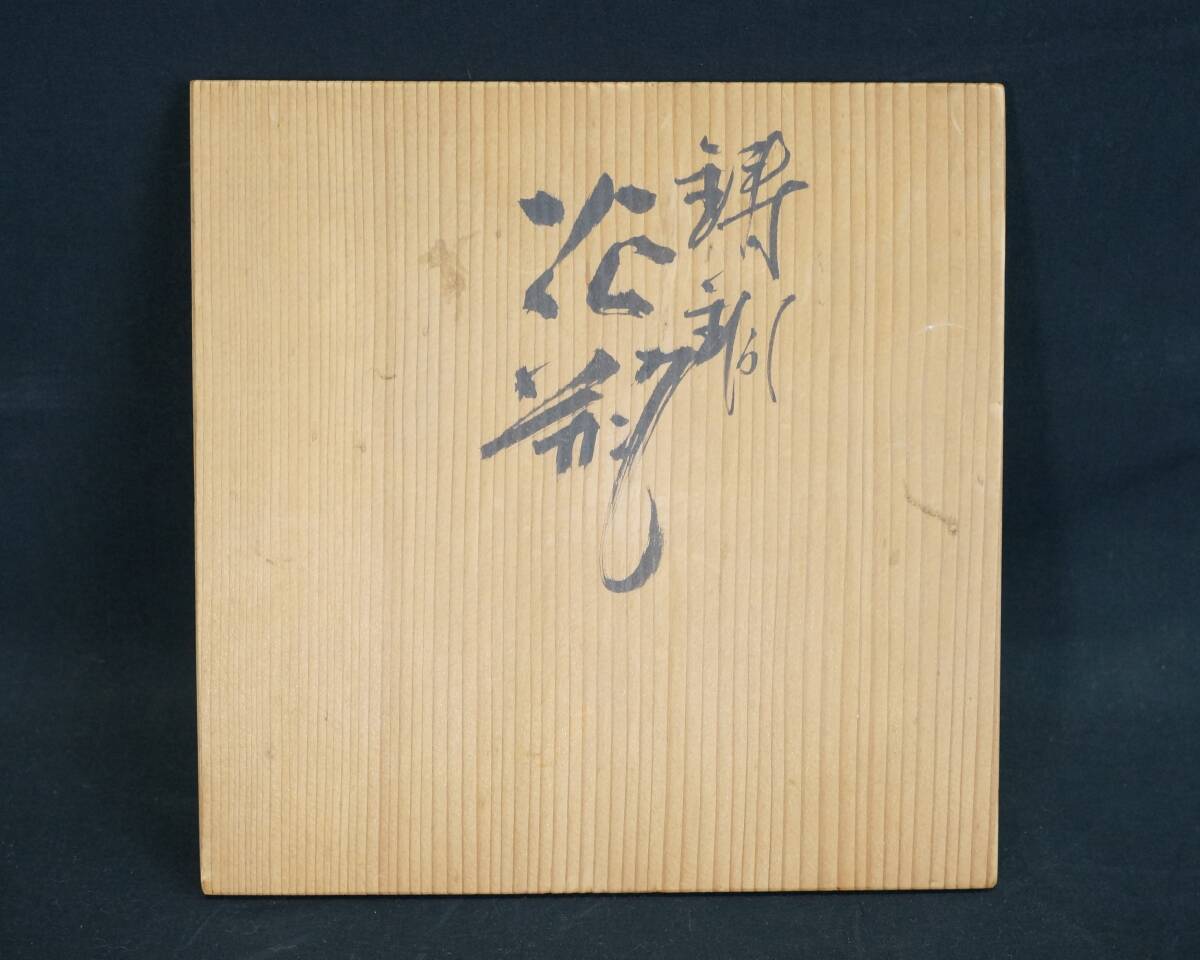 鋳銅
花瓶